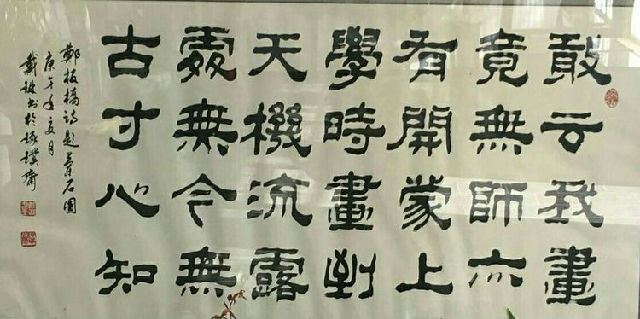 敢云我畫
竟無師亦
有開蒙上
學時畫到
天機流露
處無今無
古寸心知
鄭板橋詩題蘭石圖
庚午年夏月
戴 書於 樸齋